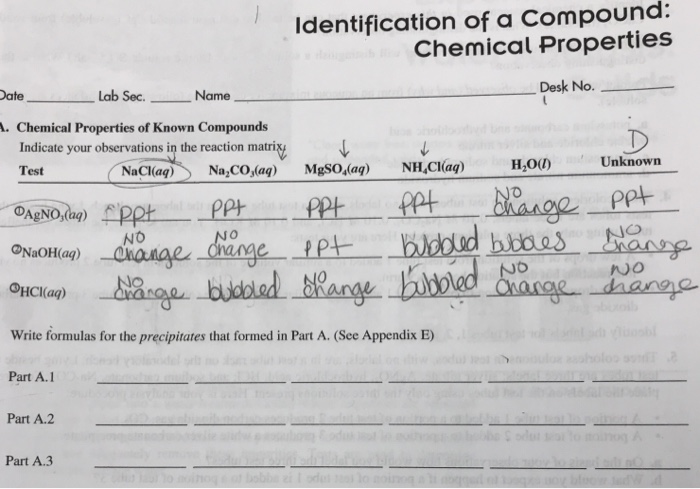 Identification of a Compound:
Chemical Properties
Date Lab Sec. Name Desk No.
A. Chemical Properties of Known Compounds
Indicate your observations in the reaction matrix.
D
Test NaCl(aq) Na₂CO₃(aq) MgSO₄(aq) NH₄Cl(aq) H₂O(l) Unknown
①AgNO₃(aq) ppt ppt ppt ppt NO change ppt
②NaOH(aq) NO change NO change ppt bubbled bubbles NO change
③HCl(aq) NO change bubbled NO change bubbled NO change NO change
Write formulas for the precipitates that formed in Part A. (See Appendix E)
Part A.1
Part A.2
Part A.3